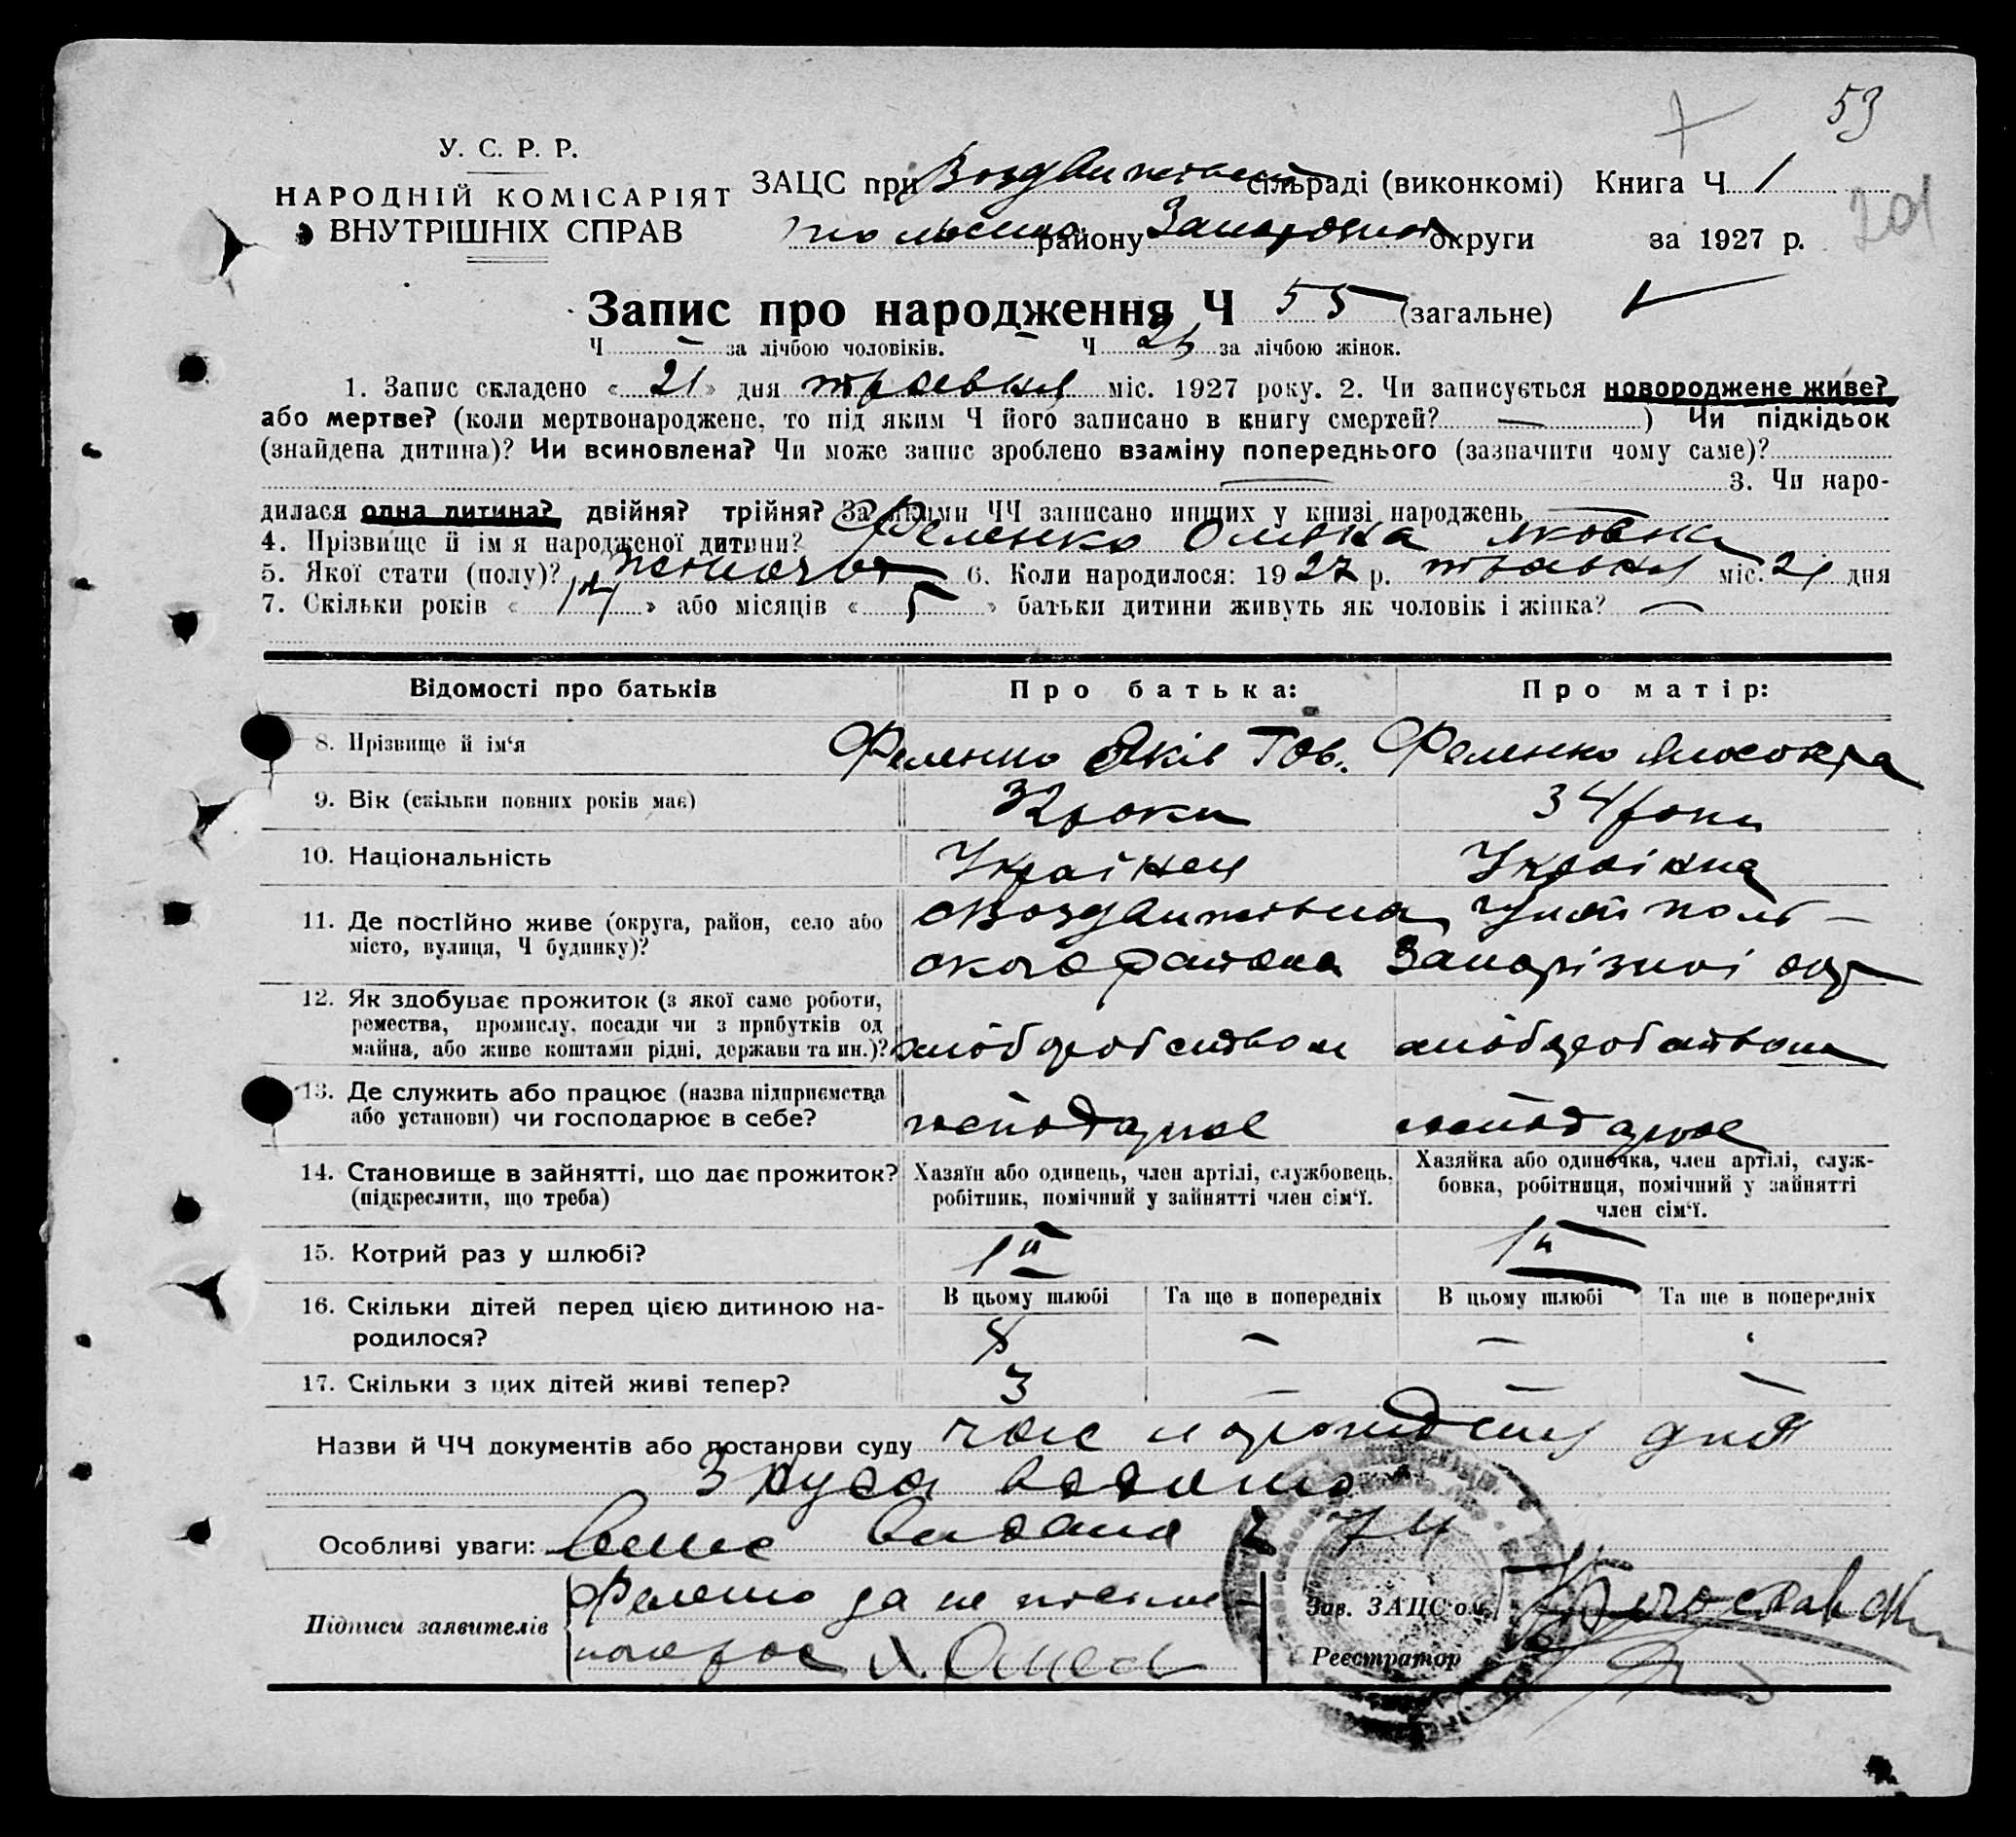 53
У. С. Р. Р.
НАРОДНІЙ КОМІСАРІЯТ
ВНУТРІШНІХ СПРАВ
ЗАЦС при Воздвижівській сільраді (виконкомі) Книга Ч 1
району Запорізької округи за 1927 р.
201
Запис про народження Ч 55 (загальне)
Ч — за лічбою чоловіків. Ч 25 за лічбою жінок.
1. Запис складено « 21 » дня травня міс. 1927 року. 2. Чи записується новороджене живе?
або мертве? (коли мертвонароджене, то під яким Ч його записано в книгу смертей? — ) Чи підкідьок
(знайдена дитина)? Чи всиновлена? Чи може запис зроблено взаміну попереднього (зазначити чому саме)?
— 3. Чи наро-
дилася одна дитина? двійня? трійня? За якими ЧЧ записано инших у книзі народжень —
4. Прізвище й ім'я народженої дитини? Феленко Олена Яковна
5. Якої статі (полу)? жіночої 6. Коли народилося: 1927 р. травня міс. 21 дня
7. Скільки років « » або місяців « 5 » батьки дитини живуть як чоловік і жінка? —
Відомості про батьків
Про батька:
Про матір:
8. Прізвище й ім'я Феленко Яків Феленко
9. Вік (скільки повних років має) 32 роки 34 роки
10. Національність Українец Українка
11. Де постійно живе (округа, район, село або
місто, вулиця, Ч будинку)?
с Воздвижівка
ского района Запорізької окр
12. Як здобуває прожиток (з якої саме роботи,
ремества, промислу, посади чи з прибутків од
майна, або живе коштами рідні, держави та ин.)?
хліборобством хліборобством
13. Де служить або працює (назва підприємства
або установи) чи господарює в себе?
господарює господарює
14. Становище в зайнятті, що дає прожиток?
(підкреслити, що треба)
Хазяїн або одинець, член артілі, службовець,
робітник, помічний у зайнятті член сім'ї.
Хазяйка або одиночка, член артілі, служ-
бовка, робітниця, помічний у зайнятті
член сім'ї.
15. Котрий раз у шлюбі? 1й 1й
16. Скільки дітей перед цією дитиною на-
родилося?
В цьому шлюбі Та ще в попередніх В цьому шлюбі Та ще в попередніх
8 — —
17. Скільки з цих дітей живі тепер? 3 — — —
Назви й ЧЧ документів або постанови суду
Особливі уваги: видана 74
Підписи заявителів
Феленко за не
Зав. ЗАЦС'ом
Реєстратор